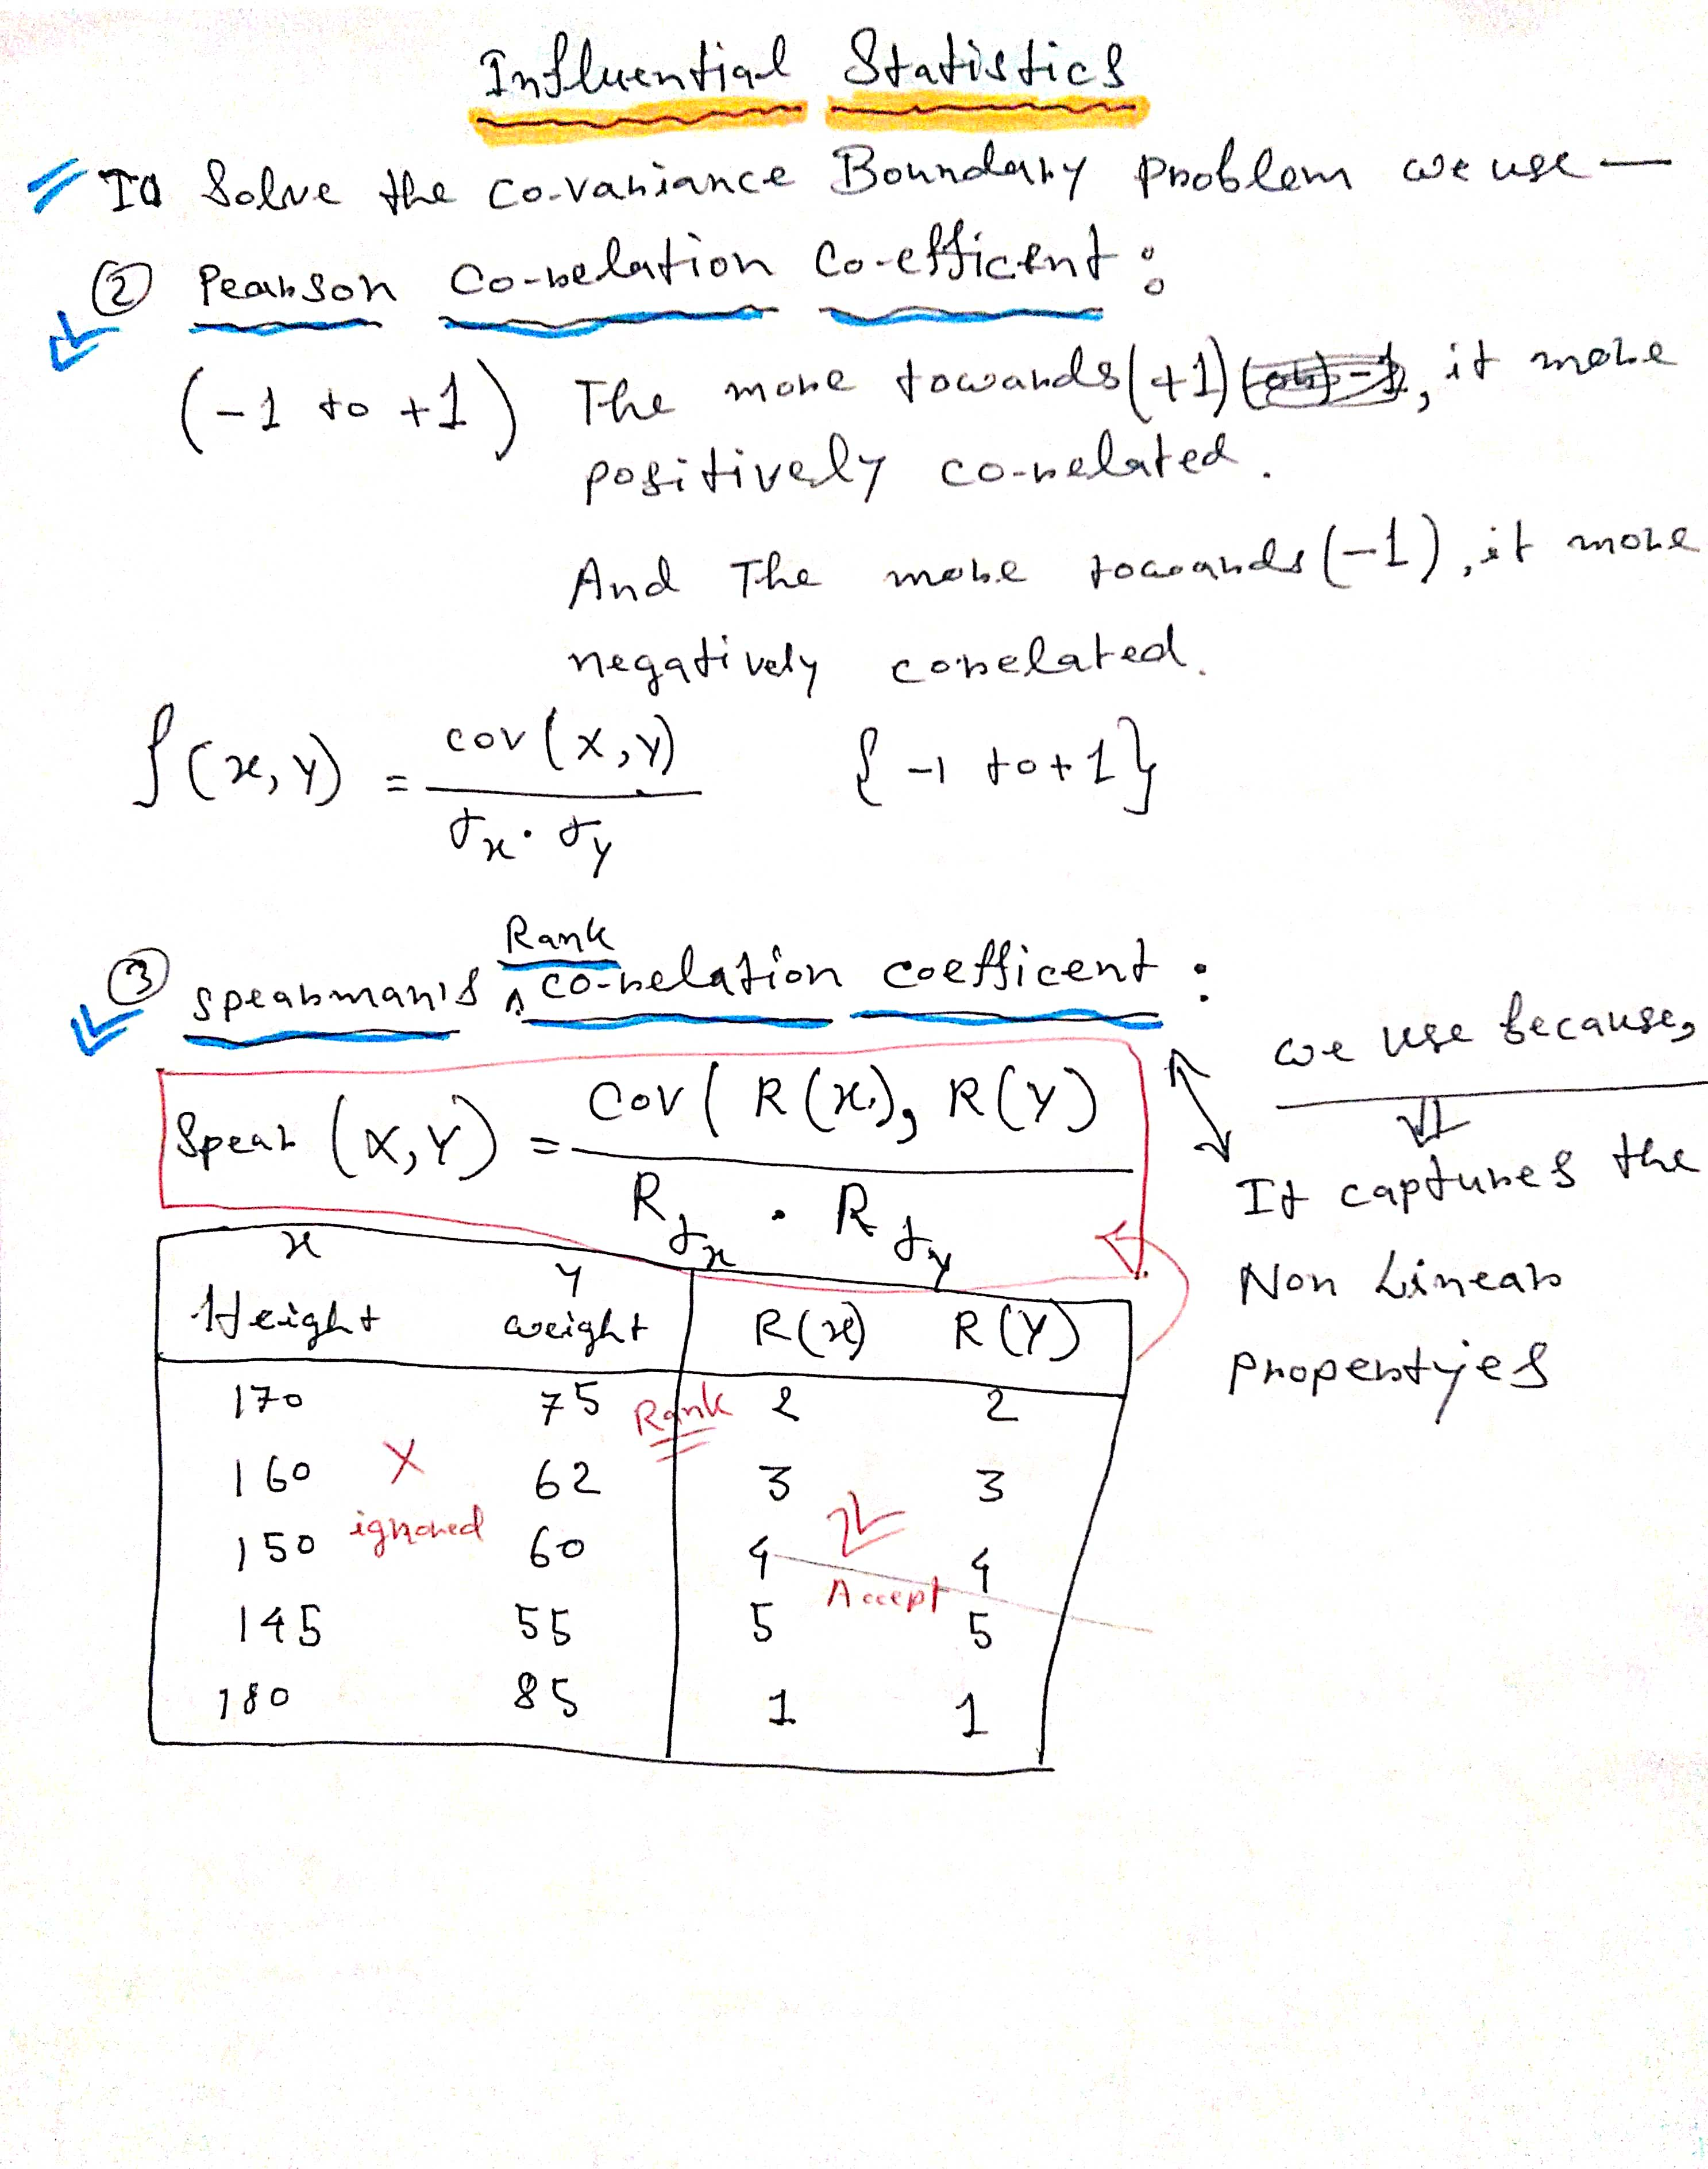 Influential Statistics
To Solve the co-variance Boundary problem we use —
② Pearson Co-relation Co-efficent :
(-1 to +1) The more towards (+1), it more
positively co-related.
And The more towards (-1), it more
negatively corelated.
ρ(x, y) = cov(x, y) / σx . σy { -1 to +1 }
Rank
③ Spearman's ^ co-relation coefficent :
we use because,
Spear (X, Y) = Cov( R(x), R(Y) / Rσx . Rσy
It captures the
Non Linear
propertyies
x Y
Height weight R(x) R(Y)
170 75 Rank 2 2
160 X 62 3 3
150 ignored 60 4 4
Accept
145 55 5 5
180 85 1 1